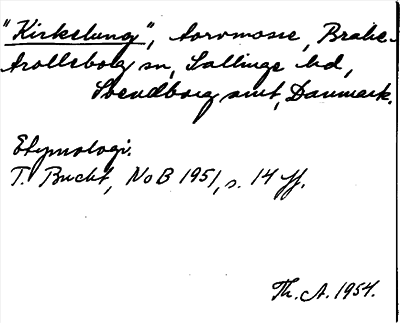 "Kirkelung", torvmosse, Brahe-
trolleborg sn, Sallinge hd,
Svendborg amt, Danmark.
Etymologi.
T. Bucht, NoB 1951, s. 14 ff.
Th. A. 1954.